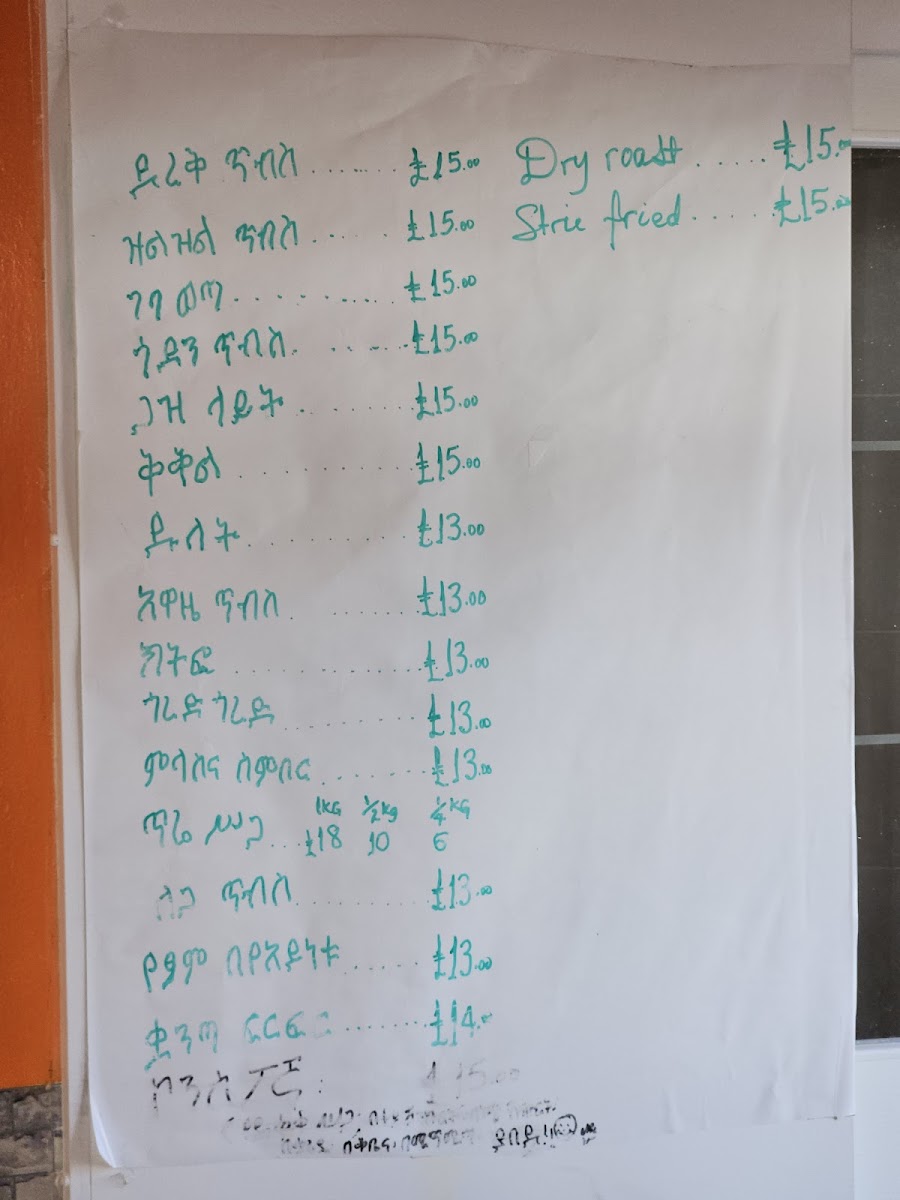 ደረቅ ጥብስ ....... £15.00 Dry roast ...... £15.00
ዝልዝል ጥብስ ...... £15.00 Strie fried ..... £15.00
ገባ ወጣ ........... £15.00
ጎድን ጥብስ ...... £15.00
ጋዝ ላይት ........ £15.00
ቅቅል ............ £15.00
ዱለት ........... £13.00
አዋዜ ጥብስ ...... £13.00
ክትፎ ............. £13.00
ጎረድ ጎረድ ......... £13.00
ምላስና ሰምበር ....... £13.00
1kg ½kg ¼kg
ጥሬ ሥጋ ... £18 10 6
ስጋ ጥብስ ........ £13.00
የፆም በየአይነቱ ...... £13.00
ቋንጣ ፍርፍር ....... £14.00
£15.00